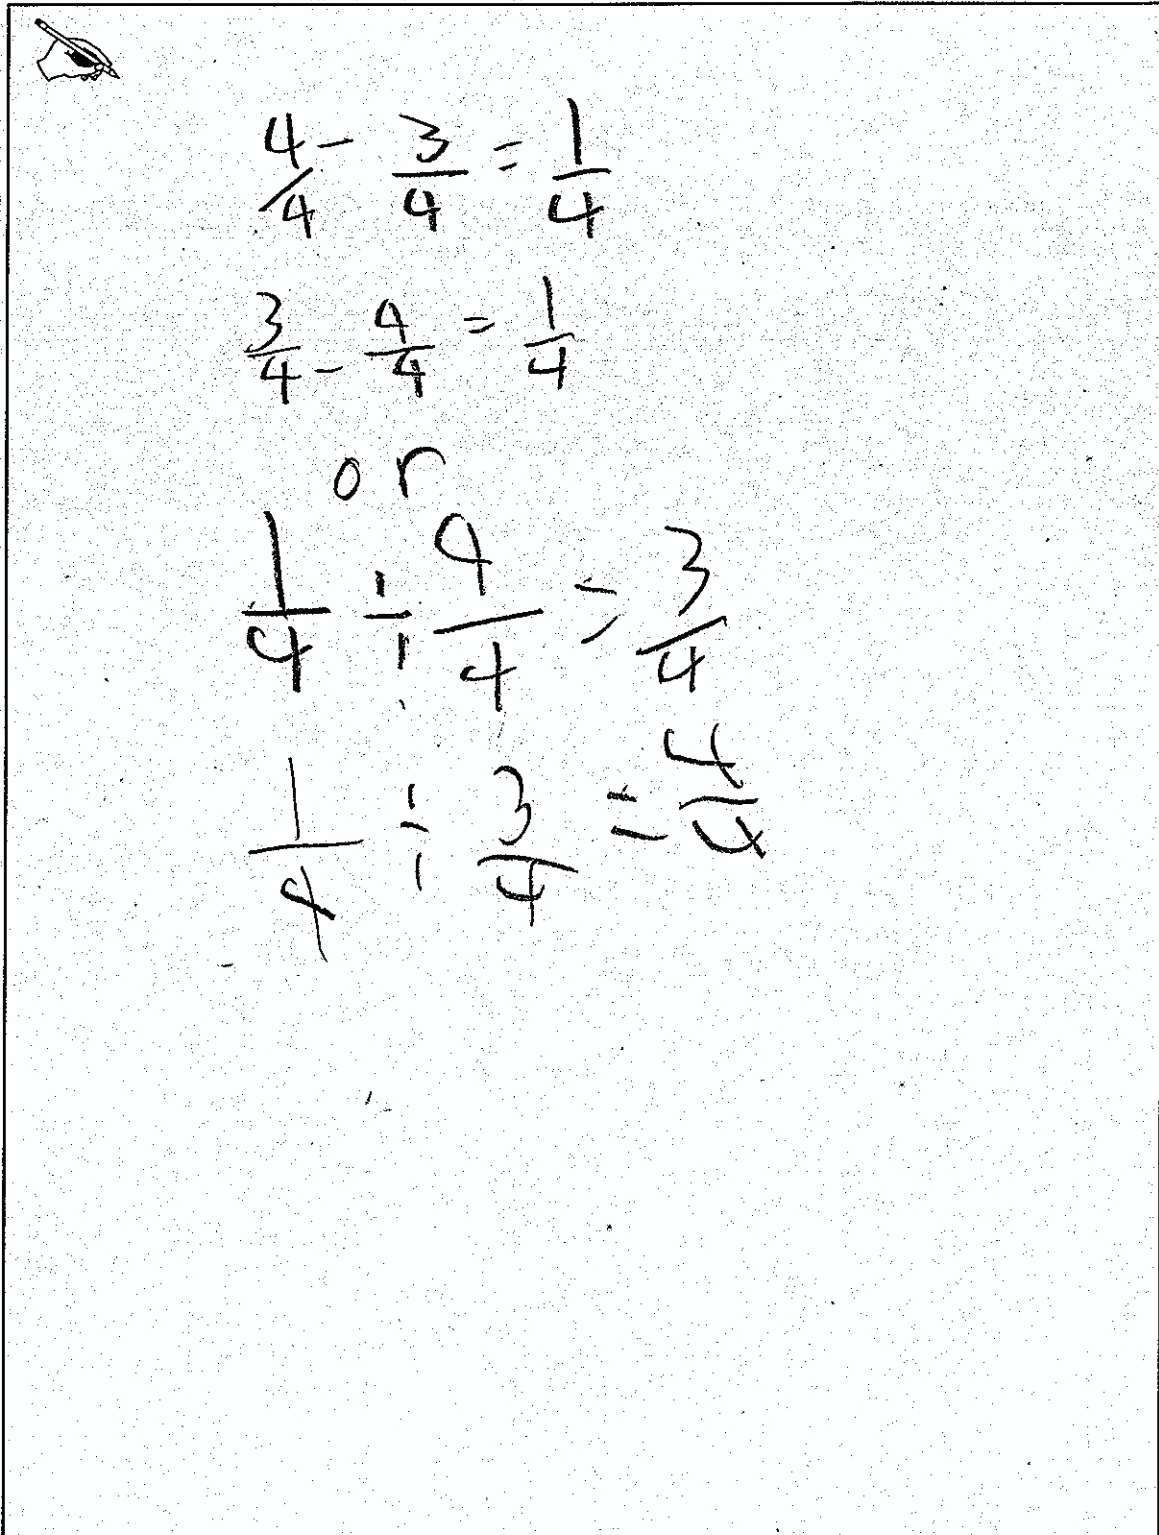 4/4 - 3/4 = 1/4
3/4 - 4/4 = 1/4
or
1/4 ÷ 4/4 = 3/4
1/4 ÷ 3/4 = 4/4